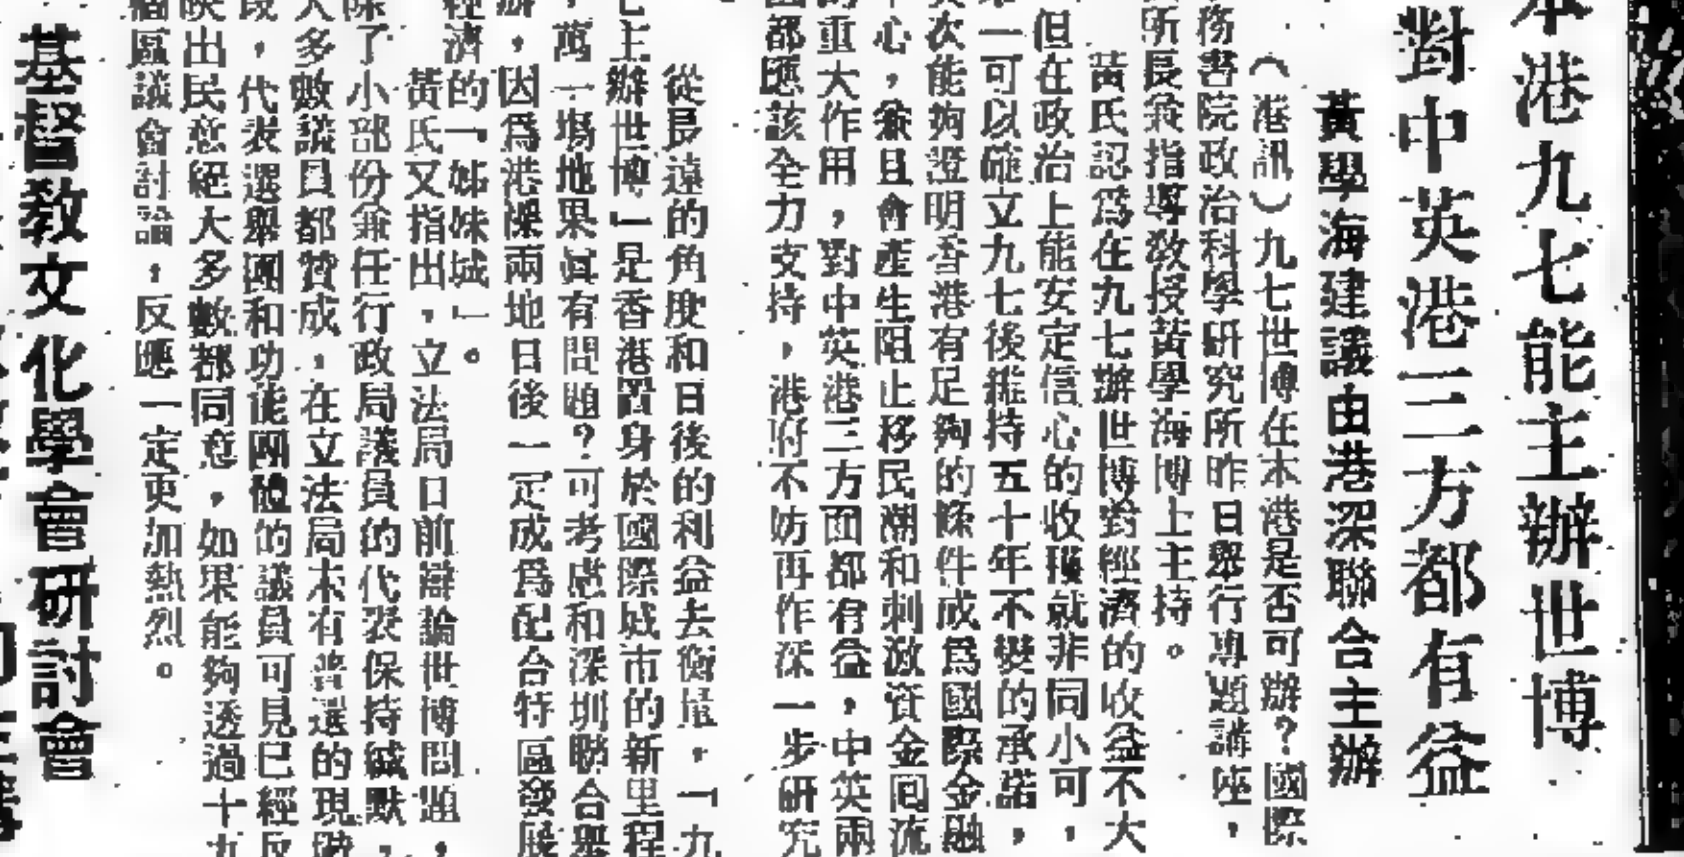 本港九七能主辦世博
對中英港三方都有益
黃學海建議由港深聯合主辦
（港訊）九七世博在本港是否可辦？國際
務書院政治科學研究所昨日舉行專題講座，
所長兼指導教授黃學海博士主持。
黃氏認爲在九七辦世博對經濟的收益不大
但在政治上能安定信心的收穫就非同小可，
一可以確立九七後維持五十年不變的承諾，
次能夠證明香港有足夠的條件成爲國際金融
心，兼且會產生阻止移民潮和刺激資金回流
重大作用，對中英港三方面都有益，中英兩
都應該全力支持，港府不妨再作深一步研究
從長遠的角度和日後的利益去衡量，「九
七主辦世博」是香港置身於國際城市的新里程
，萬一場地果眞有問題？可考慮和深圳聯合舉
辦，因爲港深兩地日後一定成爲配合特區發展
經濟的「姊妹城」。
黃氏又指出，立法局日前辯論世博問題，
除了小部份兼任行政局議員的代表保持緘默，
大多數議員都贊成，在立法局未有普選的現階
段，代表選舉團和功能團體的議員可見已經反
映出民意絕大多數都同意，如果能夠透過十九
個區議會討論，反應一定更加熱烈。
基督教文化學會研討會